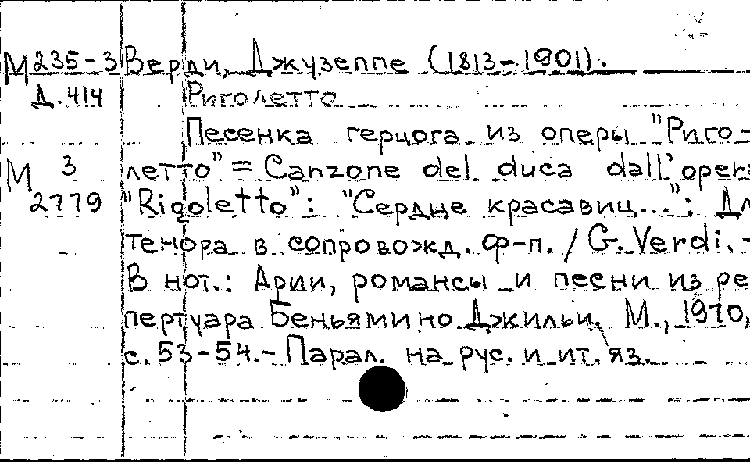 М 235-3 Верди, Джузеппе (1813-1901).
Д.414 Риголетто
Песенка герцога из оперы "Риго-
М 3 летто" = Canzone del duca dall' opera
2779 "Rigoletto": "Сердце красавиц...": Дл
тенора в сопровожд. ф-п. / G. Verdi. -
В нот.: Арии, романсы и песни из ре
пертуара Беньямино Джильи. М., 1970,
с. 53-54. - Парал. на рус. и ит. яз.